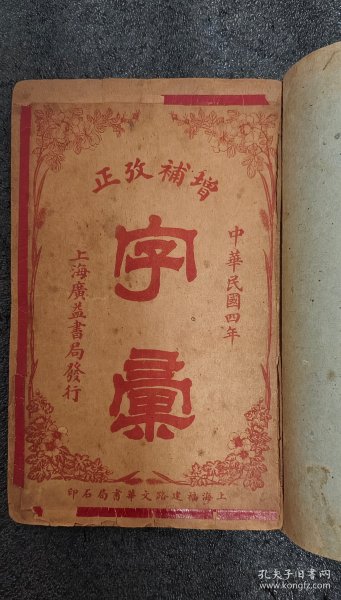 增補攷正
中華民國四年
字彙
上海廣益書局發行
上海福建路文華書局石印
孔夫子旧书网
www.kongfz.com